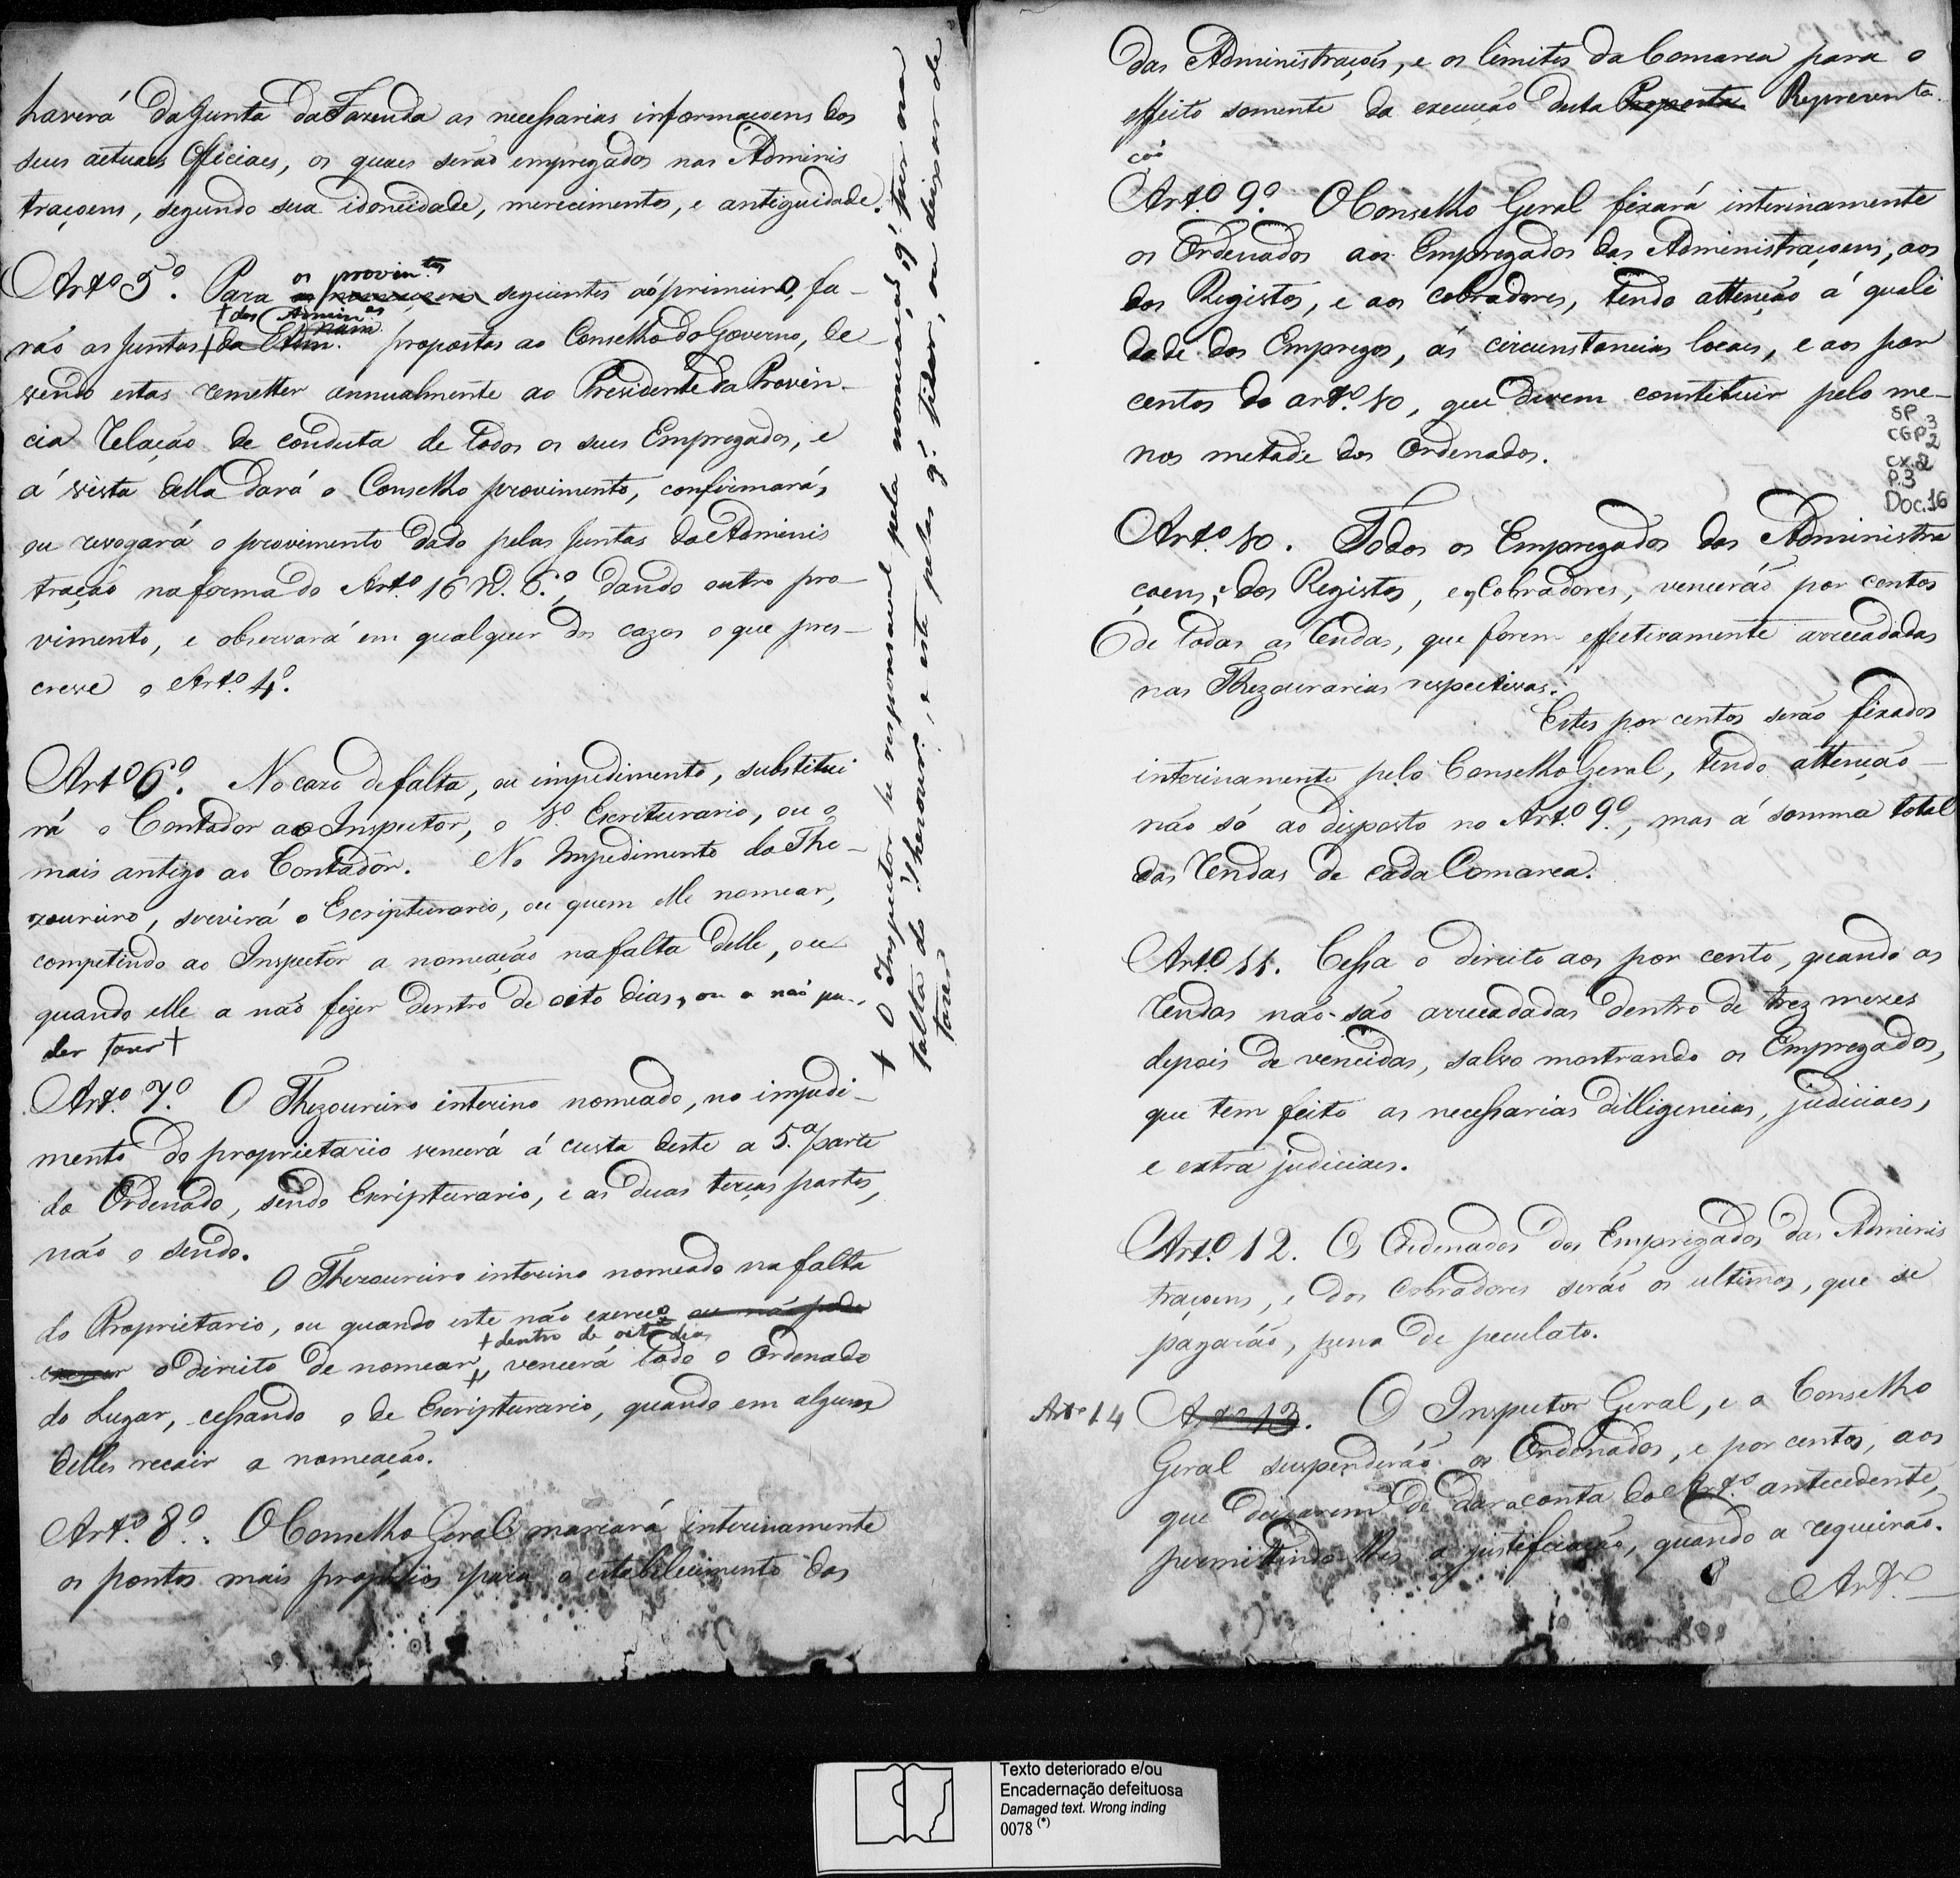 haverá da Junta da Fazenda as necessarias informaçoens dos
seus actuaes Officiaes, os quaes serão empregados nas Adminis
traçoens, segundo sua idoneidade, merecimentos, e antiguidade.
Art.º 5º. Para os provim.tos seguintes aó primeiro, fa-
rão as Juntas das Admin.as propostas ao Conselho do Governo, de-
vendo estas remetter annualmente ao Presidente da Provin-
cia relação de conducta de todos os seus Empregados, e
á vista della dará o Conselho provimento, confirmará,
ou revogará o provimento dado pelas Juntas da Adminis
tração na forma do Art.º 16 N. 6.º, dando outro pro-
vimento, e observará em qualquer dos cazos o que pres-
creve o Art.º 4º.
Art.º 6º. No cazo de falta, ou impedimento, substitui
rá o Contador ao Inspector, o 1º Escriturario, ou o
mais antigo ao Contador. No Impedimento do The-
zoureiro, servirá o Escripturario, ou quem elle nomear,
competindo ao Inspector a nomeação na falta delle, ou
quando elle a não fizer dentro de oito dias, ou a não pu-
der fazer +
+ O Inspector he responsavel pela nomeação, q' fizer na
falta do Thezour.º, e este pelas q' fizer, ou deixar de
fazer
Art.º 7.º O Thezoureiro interino nomeado, no impedi-
mento do proprietario vencerá á custa deste a 5.ª parte
do Ordenado, sendo Escripturario, e as duas terças partes,
não o sendo.
O Thezoureiro interino nomeado na falta
do Proprietario, ou quando este não exerceo ou não pode
exercer o direito de nomear, + dentro de oito dias vencerá todo o Ordenado
do Lugar, cessando o de Escripturario, quando em algum
delles recair a nomeação.
Art.º 8º. O Conselho Geral marcará interinamente
os pontos mais proprios para o estabelecimento das
das Administraçoẽs, e os limites da Comarca para o
effeito somente da execução desta Proposta Representa
ção
Art.º 9º. O Conselho Geral fixará interinamente
os Ordenados aos Empregados das Administraçoens, aos
dos Registos, e aos cobradores, tendo attenção á quali
dade dos Empregos, ás circunstancias locaes, e aos por
centos do art.º 10, que devem constituir pelo me-
nos metade dos Ordenados.
SP 3
CGP2
cx.2
P.3
Doc.16
Art.º 10. Todos os Empregados das Administra
çoens, e dos Registos, e os Cobradores, vencerão por centos
de todas as rendas, que forem effectivamente arrecadadas
nas Thezourarias respectivas.
Estes por centos serão fixados
interinamente pelo Conselho Geral, tendo attenção
não só ao disposto no Art.º 9º, mas á somma total
das rendas de cada Comarca.
Art.º 11. Cessa o direito aos por cento, quando as
rendas não são arrecadadas dentro de trez mezes
depois de vencidas, salvo mostrando os Empregados,
que tem feito as necessarias dilligencias, judiciaes,
e extra judiciaes.
Art.º 12. Os Ordenados dos Empregados das Adminis
traçoens, e dos Cobradores serão os ultimos, que se
pagarão, pena de peculato.
Art.º 14 Art.º 13. O Inspector Geral, e o Conselho
Geral suspenderão os Ordenados, e por centos, aos
que deixarem de dar a conta do Art.º antecedente,
permittindo-lhes a justificação, quando a requeirão.
Art.º
Texto deteriorado e/ou
Encadernação defeituosa
Damaged text. Wrong inding
0078 (*)